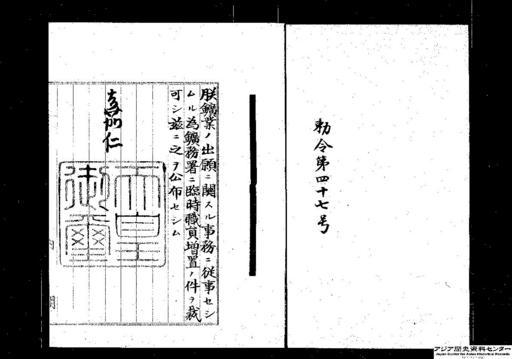 勅令第四十七号
朕鑛業ノ出願ニ関スル事務ニ従事セシ
ムル為鑛務署ニ臨時職員増置ノ件ヲ裁
可シ茲ニ之ヲ公布セシム
嘉仁
天皇
御璽
内閣
アジア歴史資料センター
Japan Center for Asian Historical Records